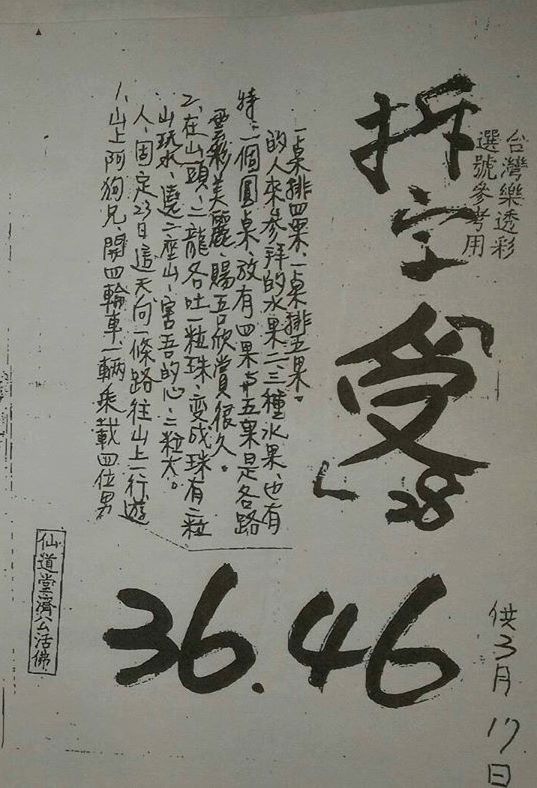 台灣樂透彩
選號參考用
拆字「受」28
1、山上阿狗兄、開四輪車、一輛乘載四位男
人、固定23日這天向一條路往山上一行遊
山玩水、遶二座山、害吾的心二粒大。
2、在山頭、二龍各吐一粒珠、變成珠有二粒
雲彩美麗、賜吾欣賞很久。
特:一個圓桌、放有四果与五果是各路
的人來參拜的水果二、三種水果、也有
一桌排四果、一桌排五果。
36.46
供3月17日
仙道堂濟公活佛